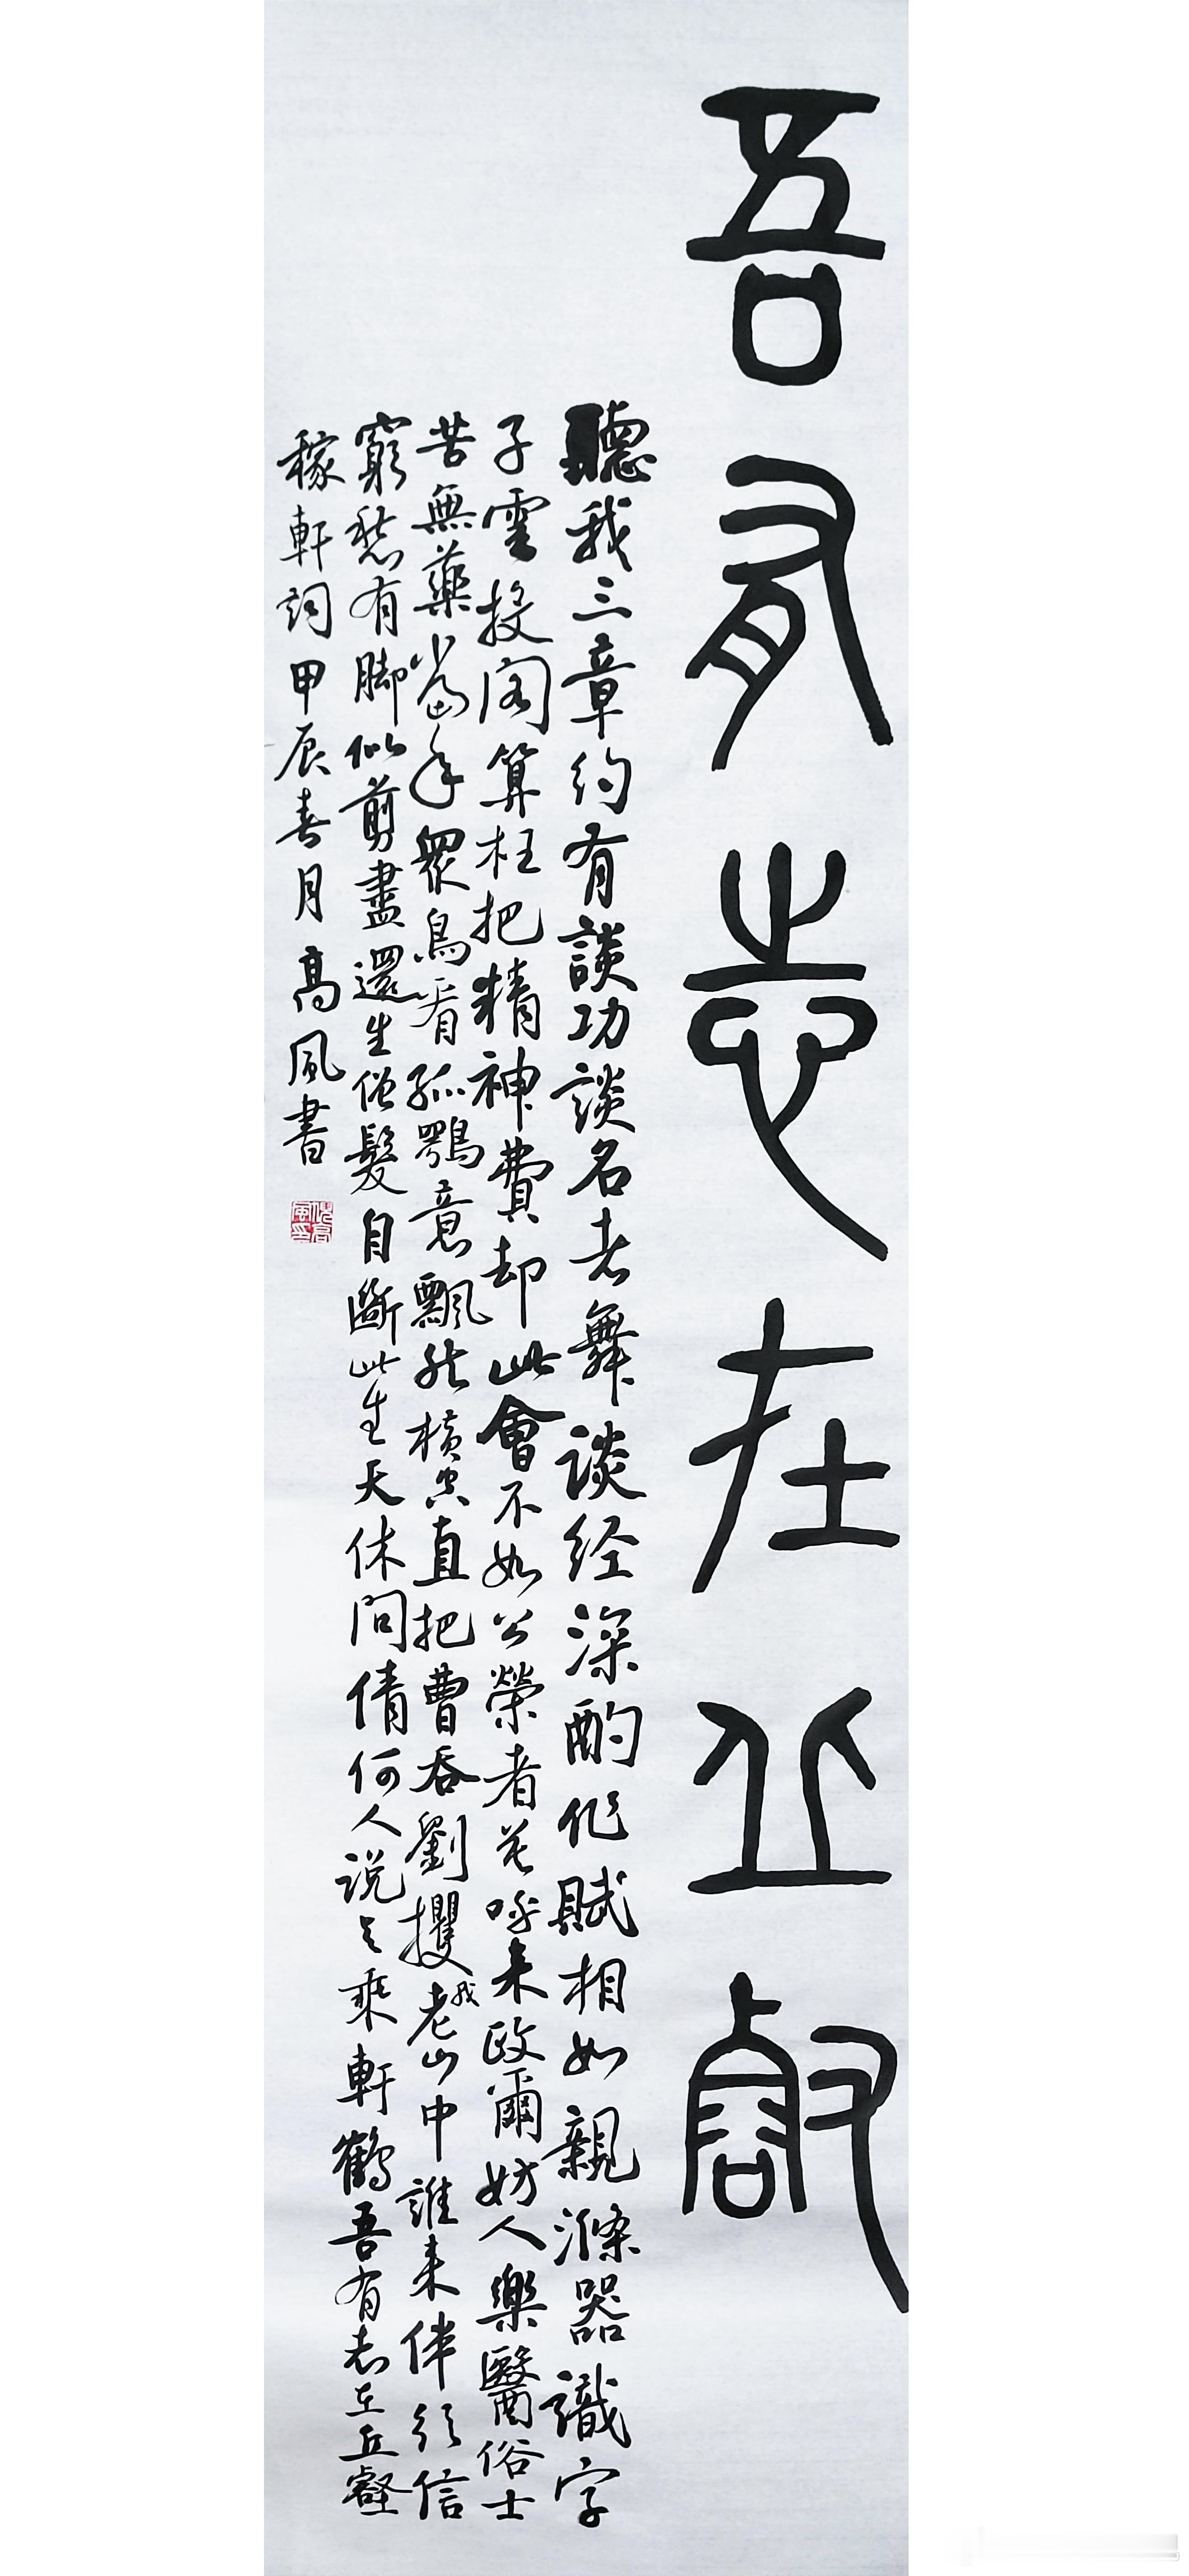 吾有志在丘壑
聽我三章約有談功談名者舞談經深酌作賦相如親滌器識字
子雲投閣算枉把精神費却此會不如公榮者莫呼來政爾妨人樂醫俗士
苦無藥當年眾鳥看孤鶚意飄然橫空直把曹吞劉攫老我山中誰來伴須信
窮愁有脚似剪盡還生僧髮自斷此生天休問倩何人說與乘軒鶴吾有志在丘壑
稼軒詞甲辰春月高風書